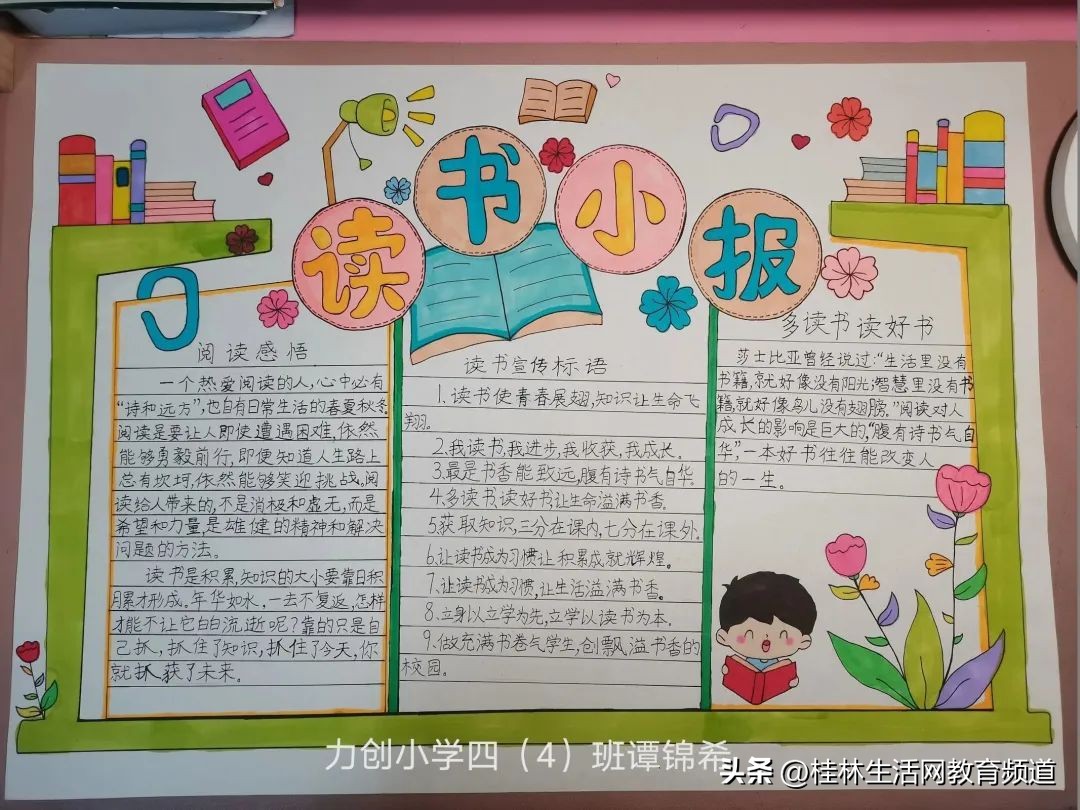 读书小报
阅读感悟
一个热爱阅读的人,心中必有
“诗和远方”,也自有日常生活的春夏秋冬。
阅读是要让人即使遭遇困难,依然
能够勇毅前行,即便知道人生路上
总有坎坷,依然能够笑迎挑战。阅
读给人带来的,不是消极和虚无,而是
希望和力量,是雄健的精神和解决
问题的方法。
读书是积累,知识的大小要靠日积
月累才形成。年华如水,一去不复返,怎样
才能不让它白白流逝呢?靠的只是自
己抓,抓住了知识,抓住了今天,你
就抓获了未来。
读书宣传标语
1.读书使青春展翅,知识让生命飞
翔。
2.我读书,我进步,我收获,我成长。
3.最是书香能致远,腹有诗书气自华。
4.多读书,读好书让生命溢满书香。
5.获取知识,三分在课内,七分在课外。
6.让读书成为习惯让积累成就辉煌。
7.让读书成为习惯,让生活溢满书香。
8.立身以立学为先,立学以读书为本。
9.做充满书卷气学生,创飘溢书香的
校园。
多读书读好书
莎士比亚曾经说过:“生活里没有
书籍,就好像没有阳光;智慧里没有书
籍,就好像鸟儿没有翅膀。”阅读对人
成长的影响是巨大的,“腹有诗书气自
华”,一本好书往往能改变人
的一生。
力创小学四(4)班谭锦希
头条 @桂林生活网教育频道